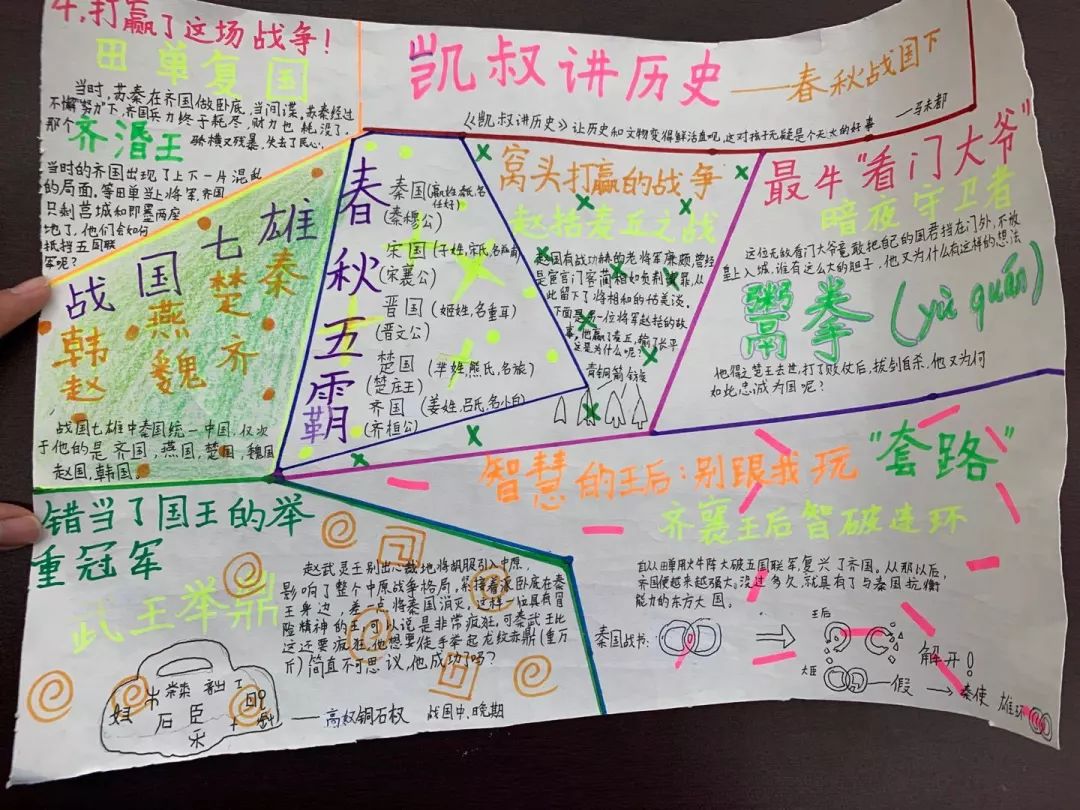 凯叔讲历史——春秋战国下
——马未都
《凯叔讲历史》让历史和文物变得鲜活直呢,这对孩子无疑是个天大的好事
牛,打赢了这场战争!
田单复国
当时,苏秦在齐国做卧底,当间谍。苏秦经过
不懈努力下,齐国兵力终于耗尽,财力也耗没了。
那个
齐湣王
骄横又残暴,失去了民心。
当时的齐国出现了上下一片混乱
的局面,等田单当上将军,齐国
只剩莒城和即墨两座
地了,他们会如何
抵挡五国联
军呢?
战国七雄
韩赵燕魏楚齐秦
战国七雄中秦国统一中国,仅次
于他的是齐国,燕国,楚国,魏国
赵国,韩国。
春秋五霸
秦国(嬴姓,名
任好)
(秦穆公)
宋国(子姓,宋氏,名兹甫)
(宋襄公)
晋国(姬姓,名重耳)
(晋文公)
楚国(芈姓,熊氏,名旅)
(楚庄王)
齐国(姜姓,吕氏,名小白)
(齐桓公)
窝头打赢的战争
赵括麦丘之战
赵国有战功赫赫的老将军廉颇,曾经
是宦官门客蔺相如负荆请罪,从
此留下了将相和的佳美谈。
下面是另一位将军赵括的故
事,他赢了麦丘,输了长平
这是为什么呢?
青铜箭镞
最牛“看门大爷”
暗夜守卫者
这位无敌看门大爷竟敢把自己的国君挡在门外,不被
皇上入城,谁有这么大的胆子,他又为什么有这样的想法
鬻拳(yù quán)
他得之楚王去世,打了败仗后,拔剑自杀,他又为何
如此忠诚为国呢?
智慧的王后:别跟我玩“套路”
齐襄王后智破连环
自从田单用火牛阵大破五国联军,复兴了齐国。从那以后,
齐国便越来越强大。没过多久,就具有了与秦国抗衡
能力的东方大国。
王后
秦国战书:
解开!
大臣
假
秦使
雄环
错当了国王的举
重冠军
武王举鼎
赵武灵王别出心裁地将胡服引入中原,
影响了整个中原战争格局。紧接着派卧底在秦
王身边,差一点将秦国消灭。这样一位具有冒
险精神的王,可以说是非常疯狂,可秦武王比
这还要疯狂,他想要徒手举起龙纹赤鼎(重万
斤)简直不可思议,他成功了吗?
——高奴铜石权 战国中,晚期